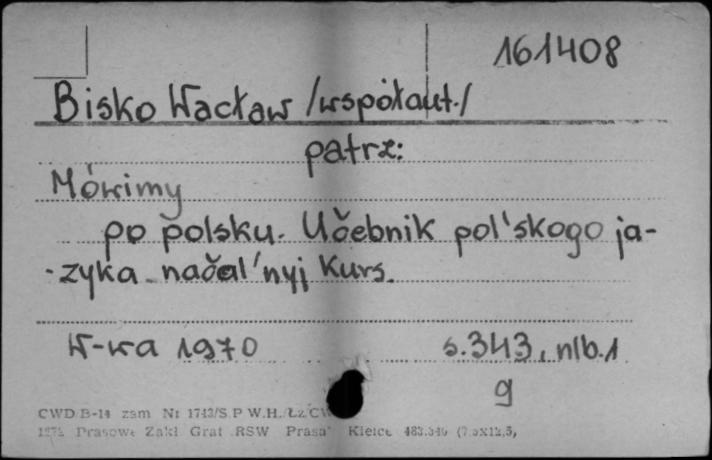 161408
Bisko Wacław /współaut./
patrz:
Mówimy
po polsku. Učebnik pol'skogo ja-
zyka načal'nyj kurs.
W-wa 1970 s. 343, nlb. 1
g
CWD B-14 zam Nr 1743/S P W.H. Łz CW
Prasowe Zakł Graf RSW Prasa" Kielce